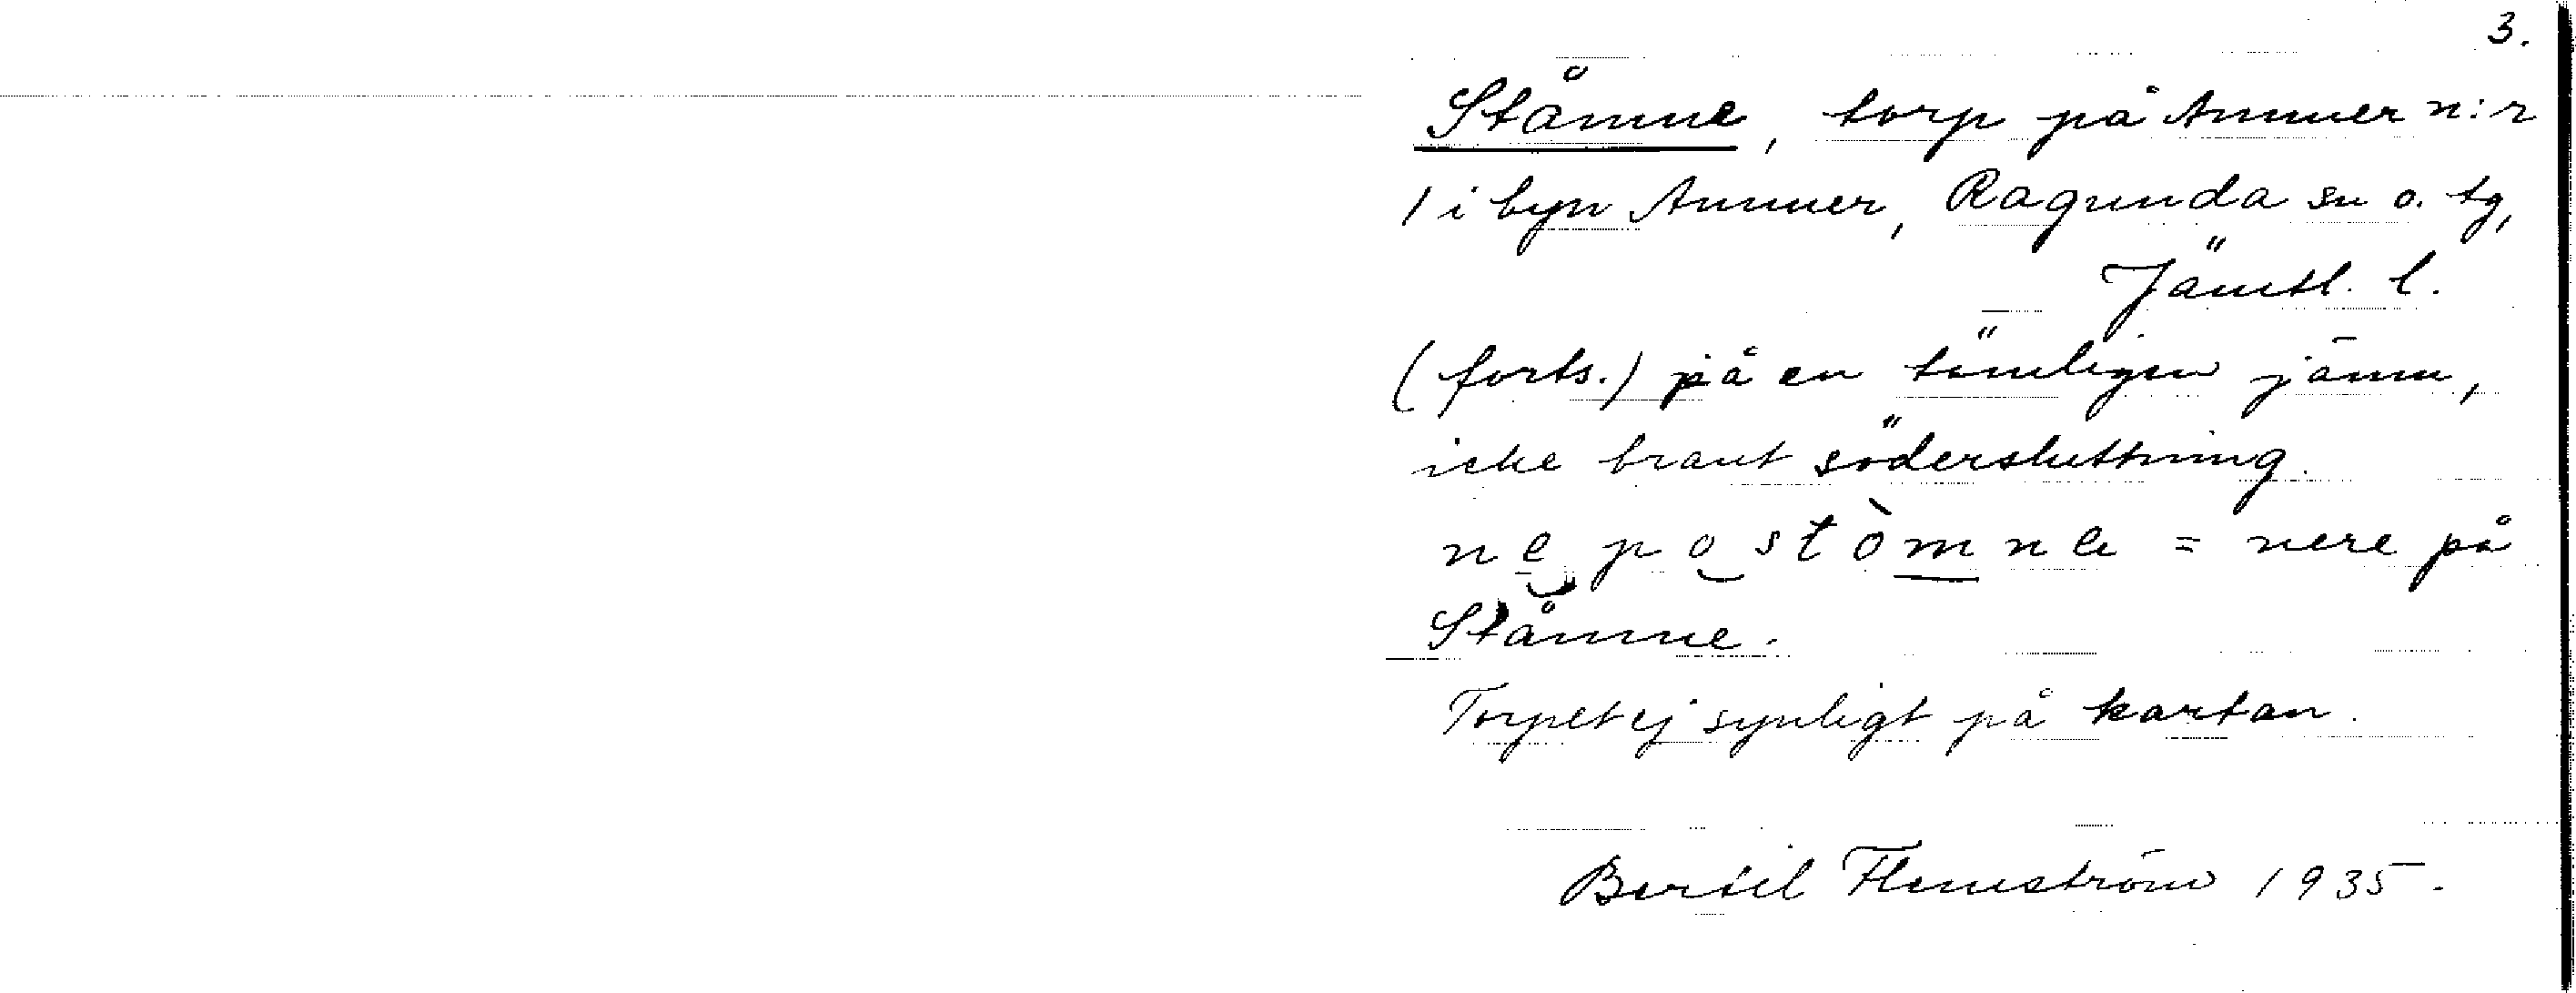 3.
Ståmne, torp på Ammer n:r
1 i byn Ammer, Ragunda sn o. tg,
Jämtl. l.
(forts.) på en tämligen jämn,
icke brant södersluttning.
ne po stòmna = nere på
Ståmne.
Torpet ej synligt på kartan.
Bertil Flemström 1935.